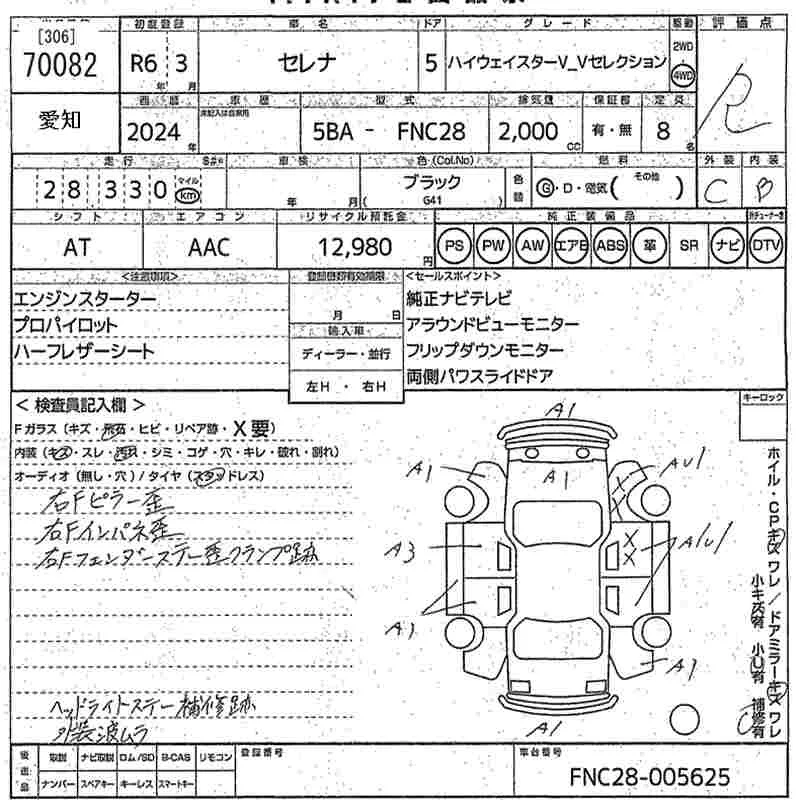 [306]
70082
初度登録
R6 3
年 月
車名
セレナ
ドア
5
グレード
ハイウェイスターV_Vセレクション
駆動
2WD
4WD
評価点
R
愛知
西暦
2024
年
車歴
型式
5BA - FNC28
排気量
2,000
CC
保証書
有・無
定員
8
名
走行
28330
マイル
km
車検
年 月
色(Col.No)
ブラック
( G41 )
色替
燃料
G・D・電気( その他 )
外装
C
内装
B
シフト
AT
エアコン
AAC
リサイクル預託金
12,980
円
純正装備品
PS PW AW エアB ABS 革 SR ナビ DTV
<注意事項>
エンジンスターター
プロパイロット
ハーフレザーシート
登録書類有効期限
月 日
輸入車
ディーラー・並行
左H・右H
<セールスポイント>
純正ナビテレビ
アラウンドビューモニター
フリップダウンモニター
両側パワスライドドア
<検査員記入欄>
Fガラス(キズ・飛石・ヒビ・リペア跡・X要)
内装(キズ・スレ・汚れ・シミ・コゲ・穴・キレ・破れ・割れ)
オーディオ(無し・穴)/タイヤ(スタッドレス)
右Fピラー歪
右Fインパネ歪
右Fフェンダーステー歪クランプ跡
ヘッドライトステー補修跡
外装波ムラ
キーロック
A1
A1
A1
AU1
X
X
A3
X
X
A1
A1
A1
ホイル・CPキズワレ/ドアミラーキズワレ
小キズ有 小U有 補修有
後送品
取説 ナビ取説 ロム/SD B-CAS リモコン
ナンバー スペアキー キーレス スマートキー
登録番号
車台番号
FNC28-005625